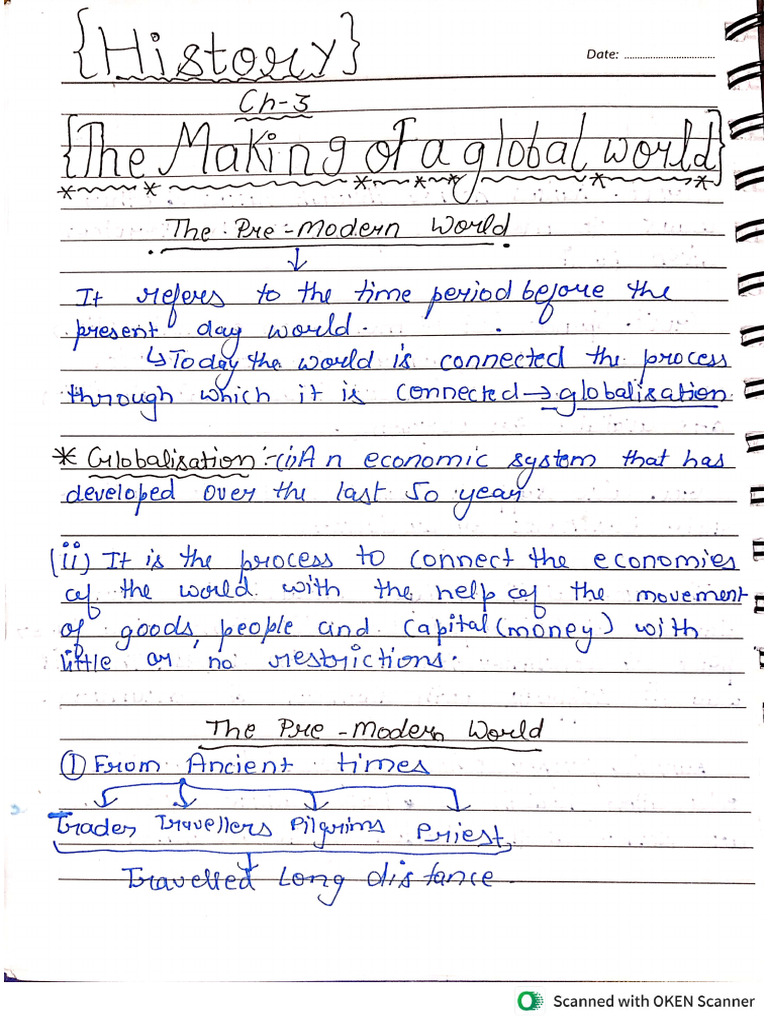 {History}
Date:
Ch-3
{The Making of a global world}
The Pre-Modern World
↓
It referes to the time period before the
present day world.
↳Today the world is connected the process
through which it is connected→globalisation.
* Globalisation:-(i)An economic system that has
developed over the last 50 year.
(ii) It is the process to connect the economies
of the world with the help of the movement
of goods, people and capital(money) with
little or no restrictions.
The Pre-Modern World
① From Ancient times
Trader Travellers Pilgrims Priest
Travelled Long distance.
Scanned with OKEN Scanner